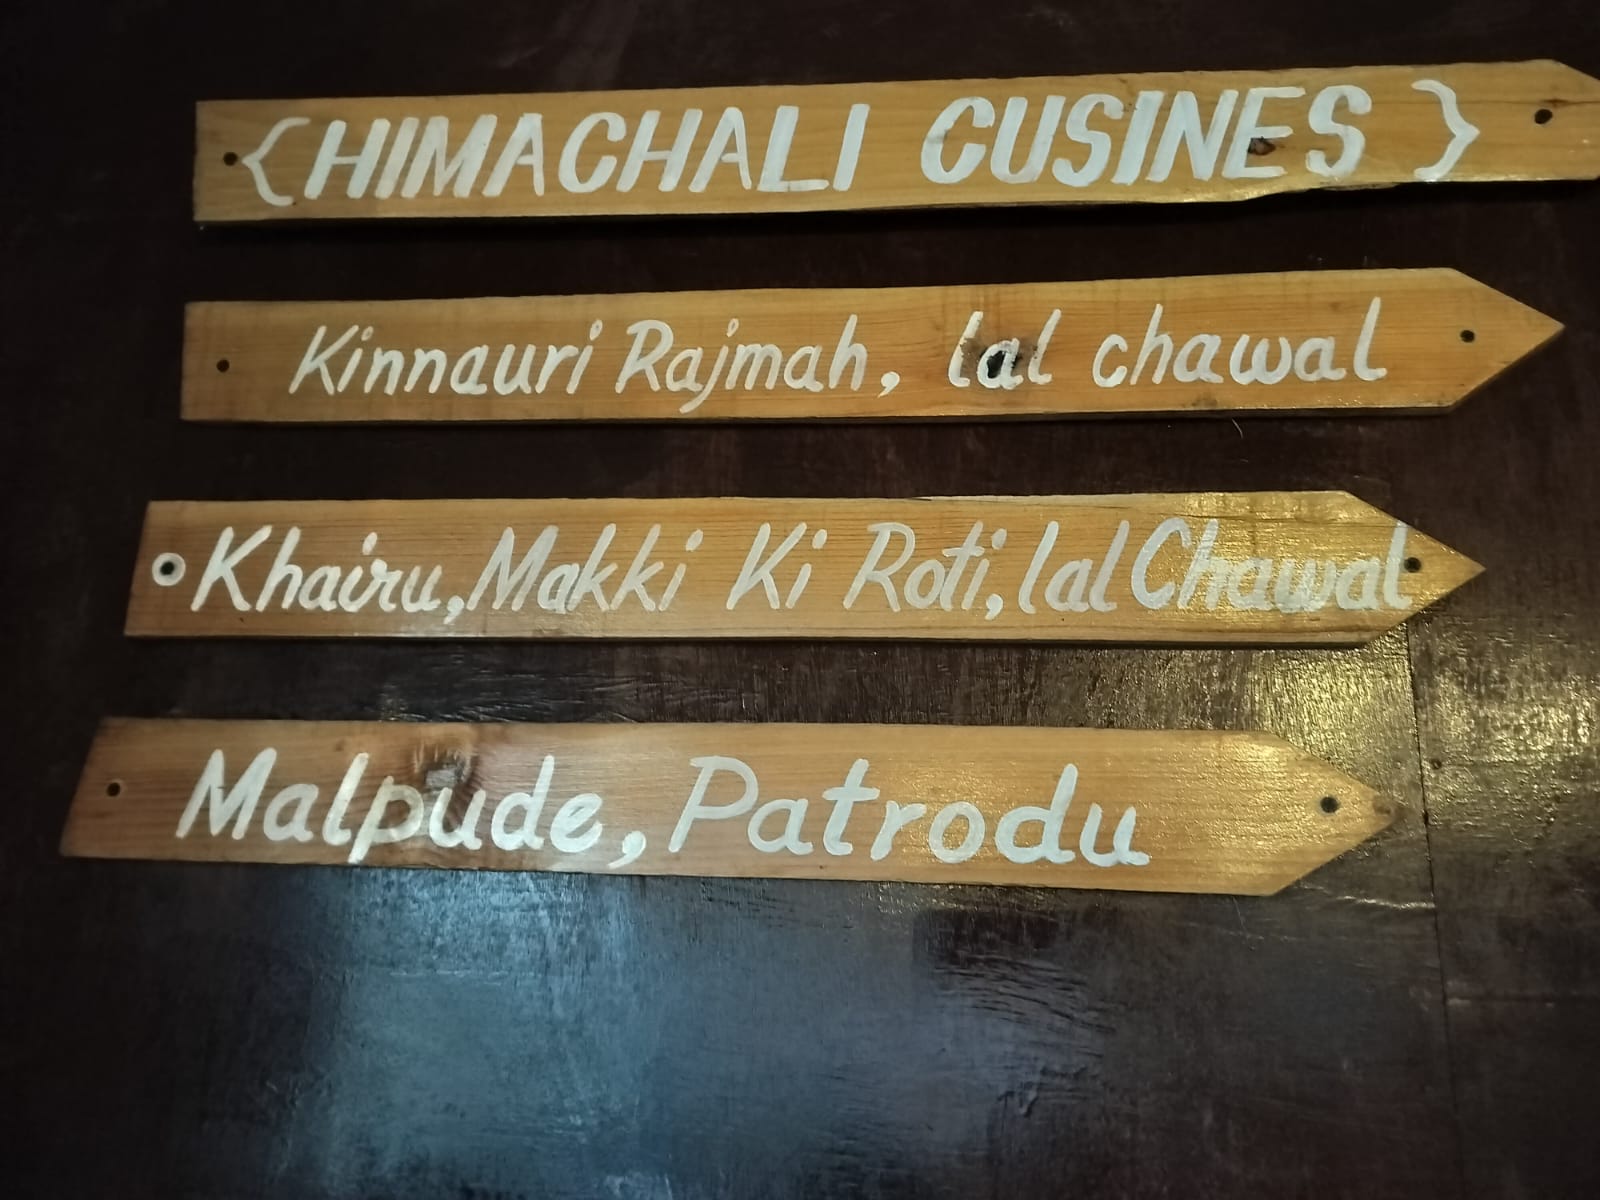 {HIMACHALI CUSINES}
Kinnauri Rajmah, lal chawal
Khairu, Makki Ki Roti, lal Chawal
Malpude, Patrodu